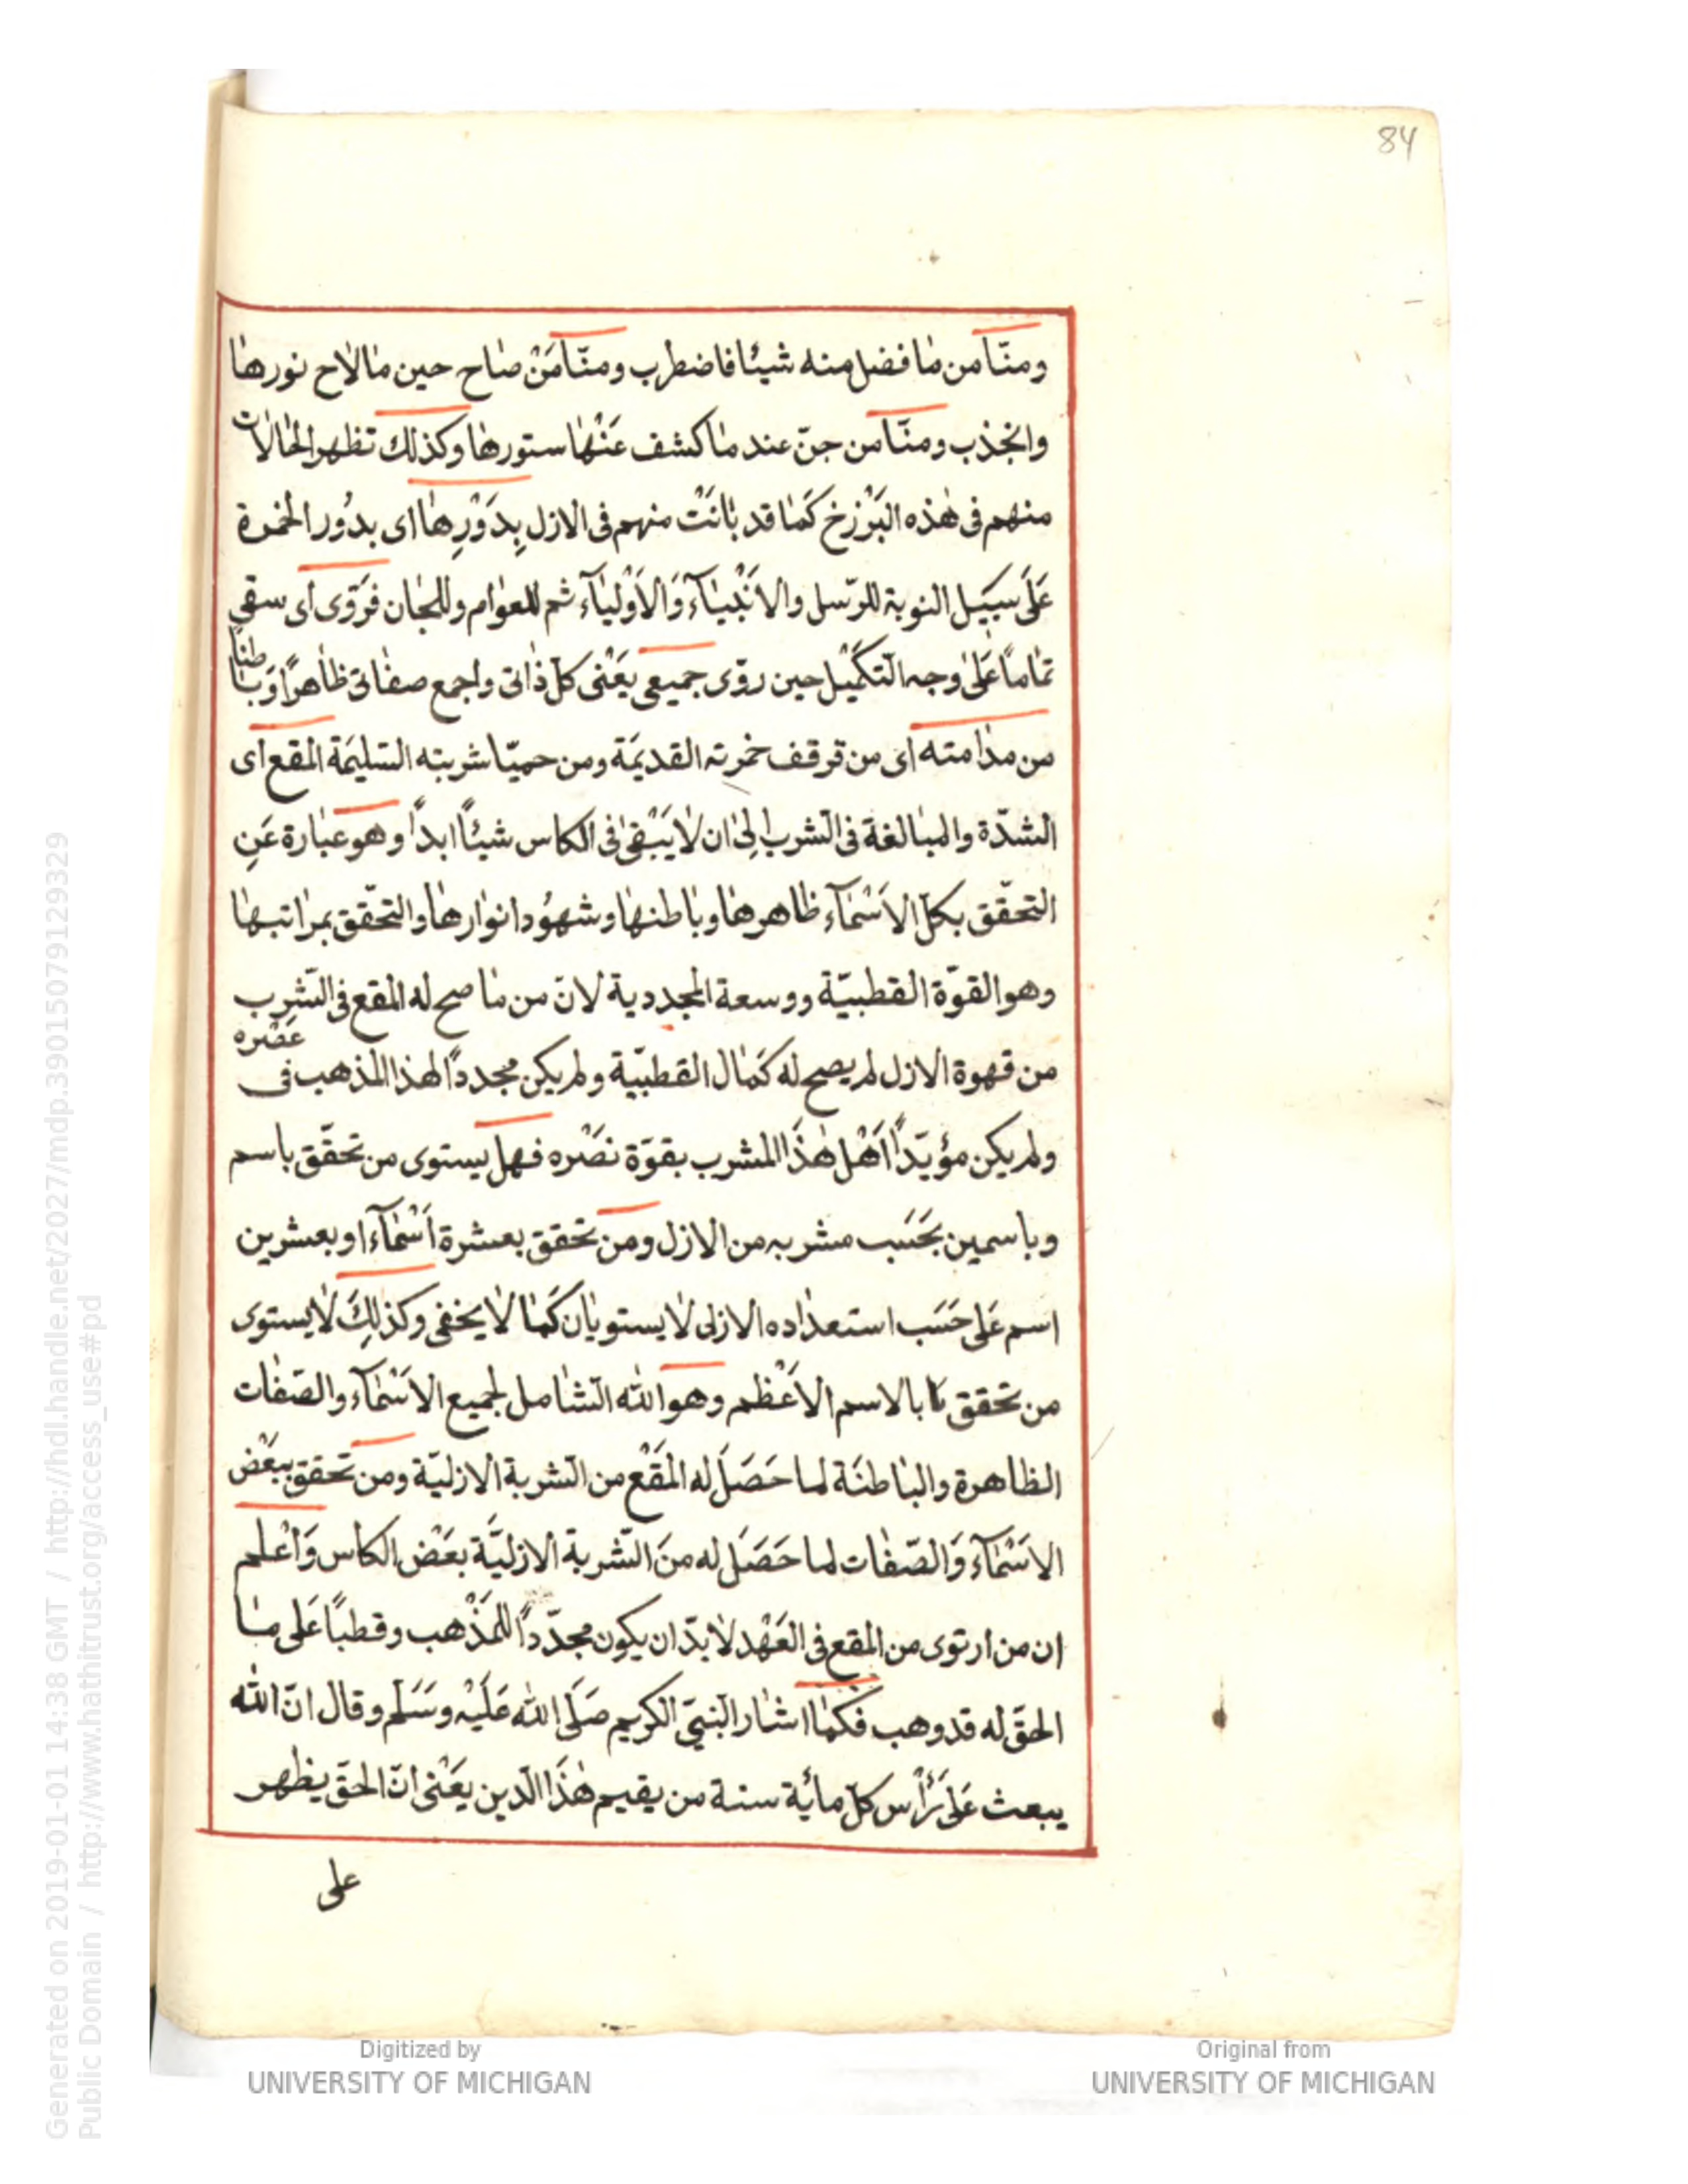 84
ومنّا من ما فضل منه شيئا فاضطرب ومنّا مَنْ صاح حين ما لاح نورها
وانجذب ومنّا من جنّ عند ما كشف عَنْها ستورها وكذلك تظهر الحالات
منهم فى هٰذه البَرْزخ كَما قد بانَتْ منهم فى الازل بِدَوْرِها اى بدُور الخمرة
عَلَى سبيل النوبة للرّسل والاَنْبياۤء وَالاَوْلياۤء ثم للعوام وللجان فرَوّى أى سقى
تماماً عَلىٰ وجه التّكميْل حين روّى جميعى يَعْنى كلّ ذاتى واجمع صفاتى ظاهرًا وَباطنًا
من مدامته اى من قرقف خمرته القديمَة ومن حميّا شربته السّليمَة المقع اى
الشدّة والمبالغة فى الشرب الى ان لا يَبْقىٰ فى الكاس شيئاً ابداً وهو عبارة عَنِ
التحقّق بكلّ الاَسْماۤء ظاهرها وباطنها وشهُود انوارها والتحقّق بمراتبها
وهو القوّة القطبيّة ووسعة المجددية لانّ من ما صح له المقع فى الشّرب
من قهوة الازل لم يصح له كَمال القطبيّة ولم يكن مجدداً لهذا المذهب فى عَصْره
ولم يكن مؤيّداً اَهْل هٰذَا المشرب بقوّة نصْره فهل يستوى من تحقّق باسم
وباسمين بحَسَب مشربه من الازل ومن تحقق بعشرة اَسْماۤء او بعشرين
اسم عَلى حَسَب استعداده الازلى لا يستويان كَما لا يخفى وكذلِكَ لا يستوى
من تحقق بالاسم الاَعْظم وهو الله الشّامل لجميع الاَسْماۤء والصّفات
الظاهرة والباطنَة لما حَصَلَ له المَقْع من الشّربة الازليّة ومن تحقق ببَعْض
الاَسْماۤء وَالصّفات لما حَصَل له منَ الشّربة الازليَّة بعَضْ الكاس وَاعْلم
ان من ارتوى من المقع فى العَهْد لا بدّ ان يكون مجدّداً للمَذْهب وقطبًا عَلى ما
الحقّ له قد وهب فكما اشار النّبيّ الكريم صَلَى الله عَلَيْه وسَلَم وقال انّ الله
يبعث عَلى رَأس كلّ مائة سنة من يقيم هٰذَا الدّين يعَنْى انّ الحقّ يظهر
على
Generated on 2019-01-01 14:38 GMT / http://hdl.handle.net/2027/mdp.39015079129329
Public Domain / http://www.hathitrust.org/access_use#pd
Digitized by
UNIVERSITY OF MICHIGAN
Original from
UNIVERSITY OF MICHIGAN